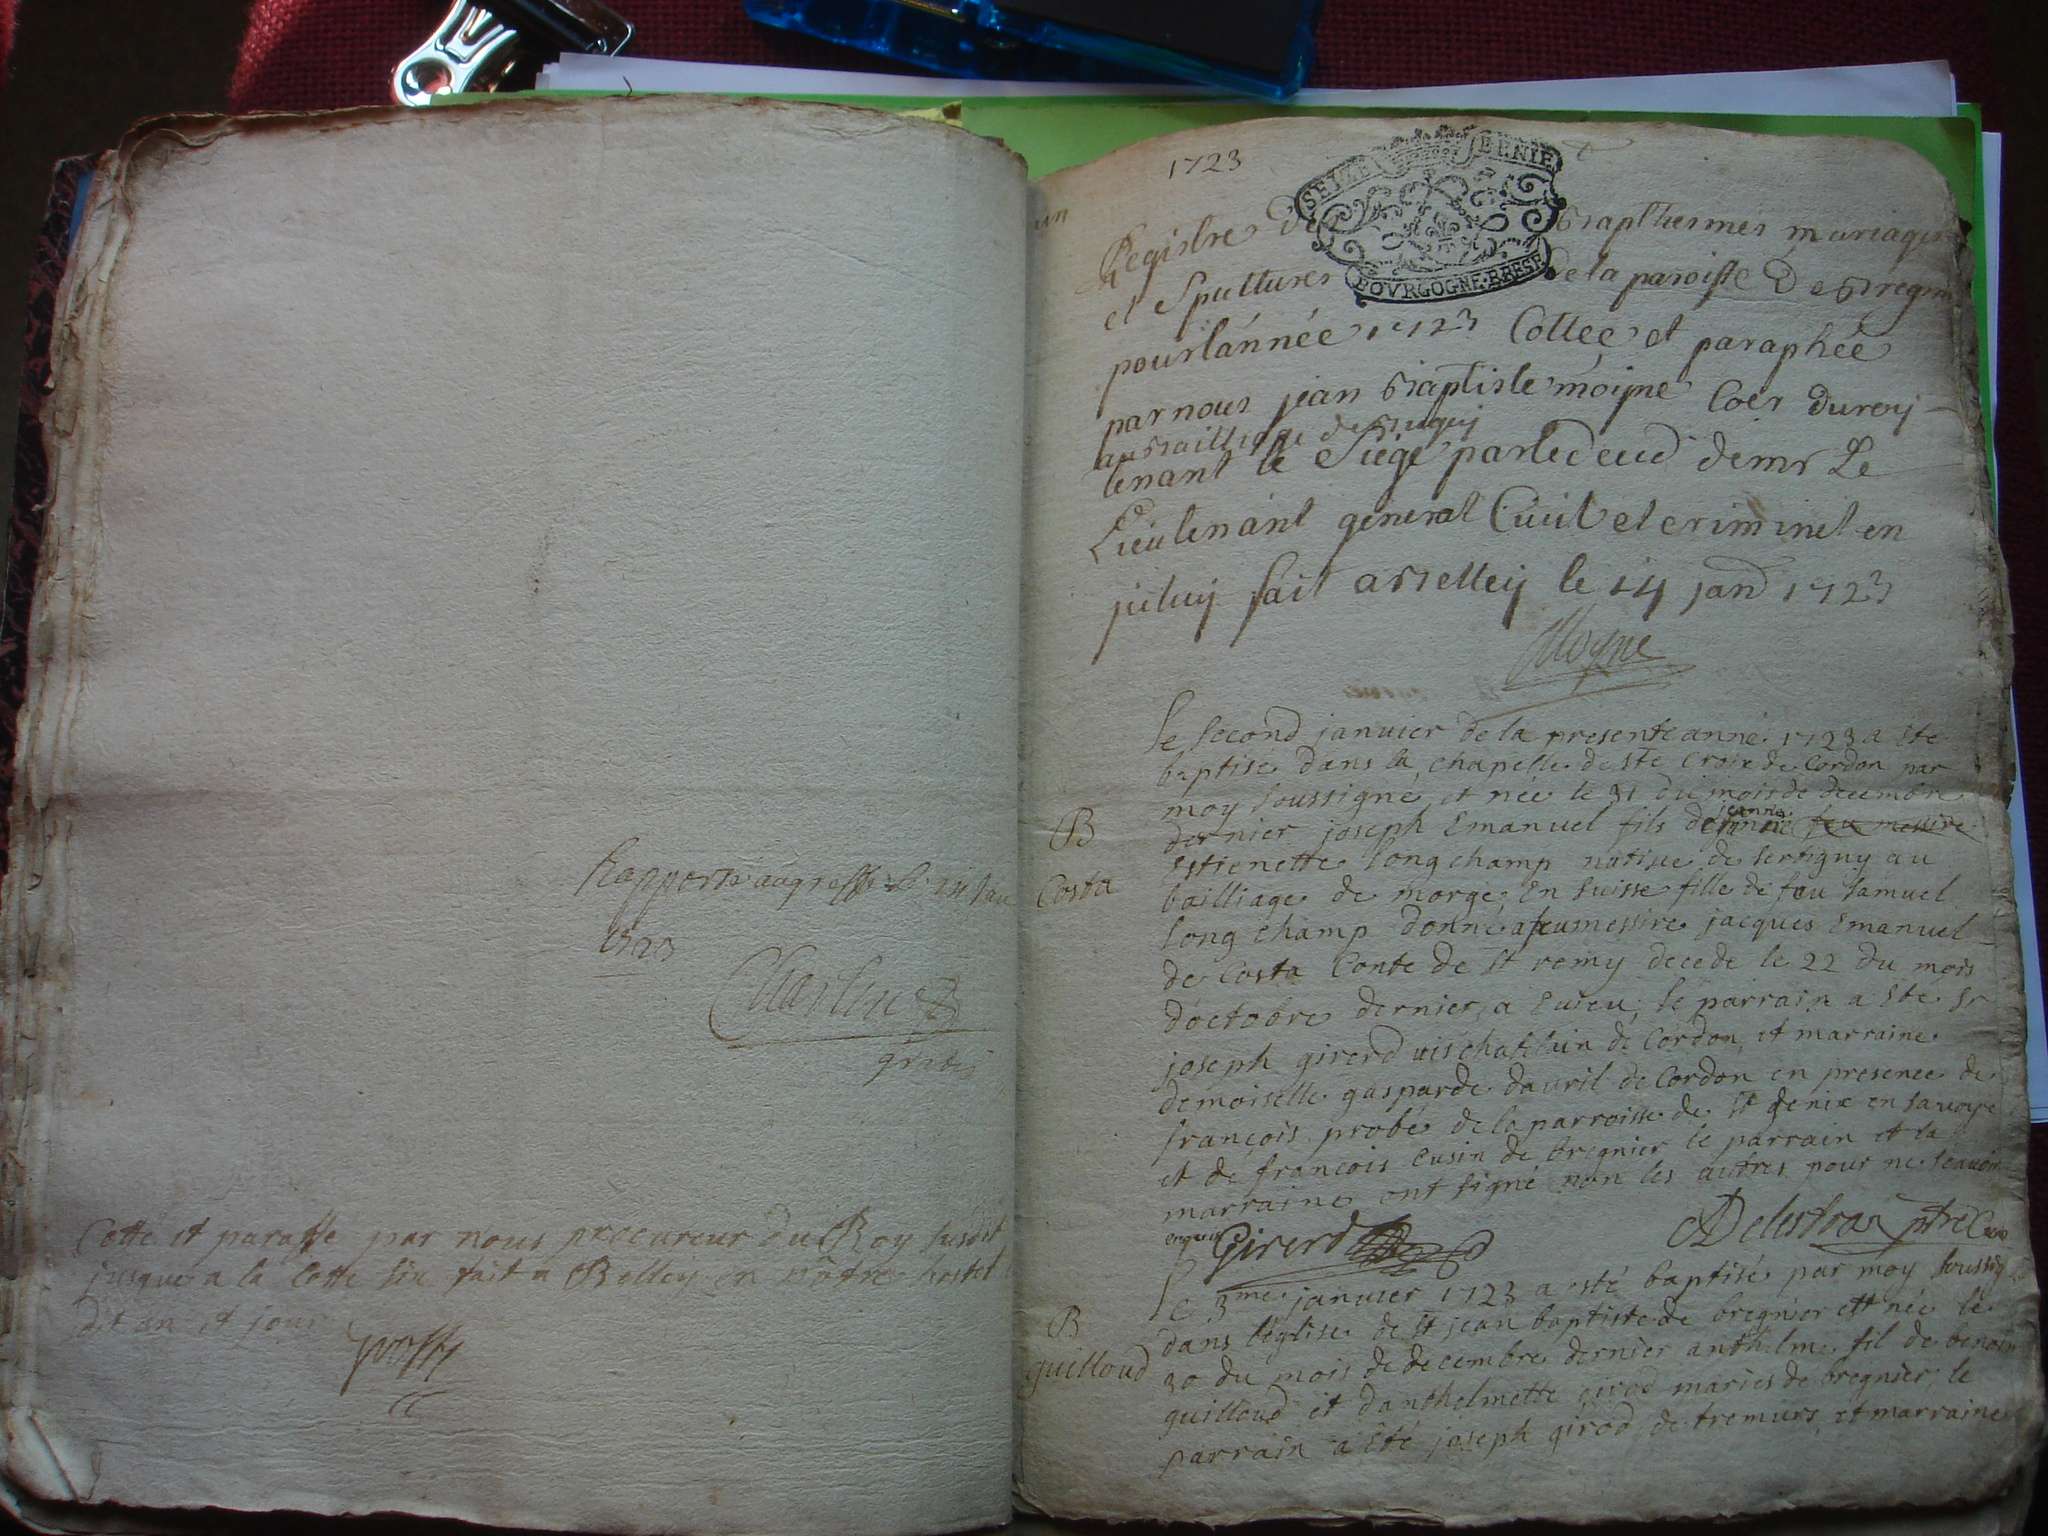 Rapporté au greffe le 14 Jan
1723
Charlin
gratis
Cotté et paraffe par nous procureur du Roy susdit
jusques a la Cotte six fait a Belley en nôtre hostel
dit an et jour
1723
SEIZE DENIE
BOVRGOGNE·BRESE
Registre des bapthesmes mariages
et Spultures de la paroisse De bregni
pour lánnée 1723 Cottee et paraphée
par nous jean baptiste moÿne Coer du roy
au bailliage de bugey
tenant le Siége par le deced de mr Le
Lieutenant general Ciuil et criminel en
jceluy fait a belley le 14 janv 1723
Moyne
Le second januier de la presente année 1723 a ete
baptisé dans la chapelle de Ste croix de Cordon par
moy soussigné et née le 31 du mois de decembre
B
dernier joseph Emanuel fils de jeanne feu messire
Estienette longchamp natiue de sertigny au
Costa
bailliage de morge, en suisse fille de feu samuel
long champ donné a feu messire jacques Emanuel
de Costa Conte de St remy decede le 22 du mois
doctobre dernier, a Euieu, le parrain a ete Sr
joseph girerd uischatelain de Cordon, et marraine
demoiselle gasparde dauril de Cordon en presence de
françois probé de la parroisse de St genix en sauoye
et de françois cusin de bregnier le parrain et la
marraine ont signé non les autres pour ne scauoir
enquis
Girerd
Delestraz ptre Curé
Le 3me januier 1723 a esté baptisé par moy soussig
B
dans léglise de St jean baptiste de bregnier ett née le
guilloud
30 du mois de decembre dernier anthelme fil de benoit
guilloud et danthelmette girod mariés de bregnier le
parrain a été joseph girod de tremurs et marraine